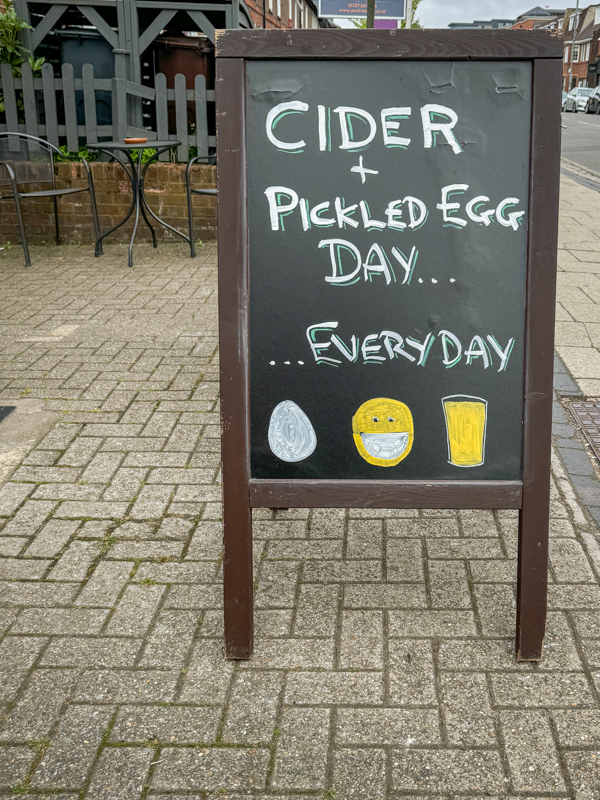 CIDER
+
PICKLED EGG
DAY...
...EVERYDAY